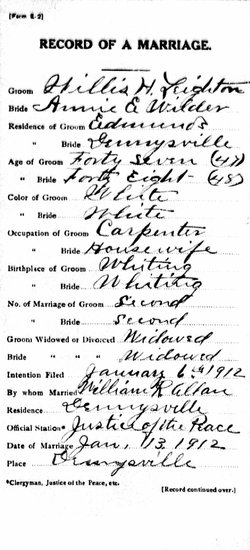 [Form E-2]
RECORD OF A MARRIAGE.
Groom Willis H. Leighton
Bride Annie E Wilder
Residence of Groom Edmunds
" Bride Dennysville
Age of Groom Forty Seven (47)
" Bride Forty Eight (48)
Color of Groom White
" Bride White
Occupation of Groom Carpenter
" Bride Housewife
Birthplace of Groom Whiting
" Bride Whiting
No. of Marriage of Groom Second
" " Bride Second
Groom Widowed or Divorced Widowed
Bride " " " Widowed
Intention Filed January 6th 1912
By whom Married William R Allan
Residence Dennysville
Official Station* Justice of the Peace
Date of Marriage Jan, 13. 1912
Place Dennysville
*Clergyman, Justice of the Peace, etc.
[Record continued over.]